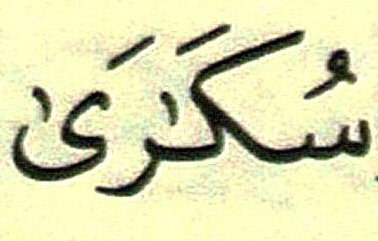 سُكَٰرَىٰ